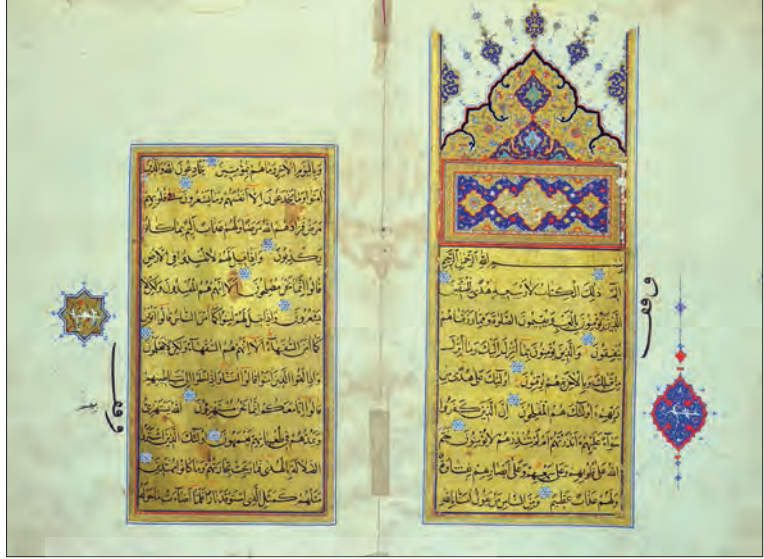 بسم الله الرحمن الرحيم
الم ذلك الكتاب لا ريب فيه هدى للمتقين
الذين يؤمنون بالغيب ويقيمون الصلوة ومما رزقناهم
ينفقون والذين يؤمنون بما أنزل إليك وما أنزل
من قبلك وبالآخرة هم يوقنون أولئك على هدى من
ربهم وأولئك هم المفلحون إن الذين كفروا
سواء عليهم أأنذرتهم أم لم تنذرهم لا يؤمنون ختم
الله على قلوبهم وعلى سمعهم وعلى أبصارهم غشاوة
ولهم عذاب عظيم ومن الناس من يقول آمنا بالله
وقف
وباليوم الآخر وما هم بمؤمنين يخادعون الله والذين
آمنوا وما يخدعون إلا أنفسهم وما يشعرون في قلوبهم
مرض فزادهم الله مرضا ولهم عذاب أليم بما كانوا
يكذبون وإذا قيل لهم لا تفسدوا في الأرض
قالوا إنما نحن مصلحون ألا إنهم هم المفسدون ولكن لا
يشعرون وإذا قيل لهم آمنوا كما آمن الناس قالوا أنؤمن
كما آمن السفهاء ألا إنهم هم السفهاء ولكن لا يعلمون
وإذا لقوا الذين آمنوا قالوا آمنا وإذا خلوا إلى شياطينهم
قالوا إنا معكم إنما نحن مستهزؤن الله يستهزئ بهم
ويمدهم في طغيانهم يعمهون أولئك الذين اشتروا
الضلالة بالهدى فما ربحت تجارتهم وما كانوا مهتدين
مثلهم كمثل الذي استوقد نارا فلما أضاءت ما حوله